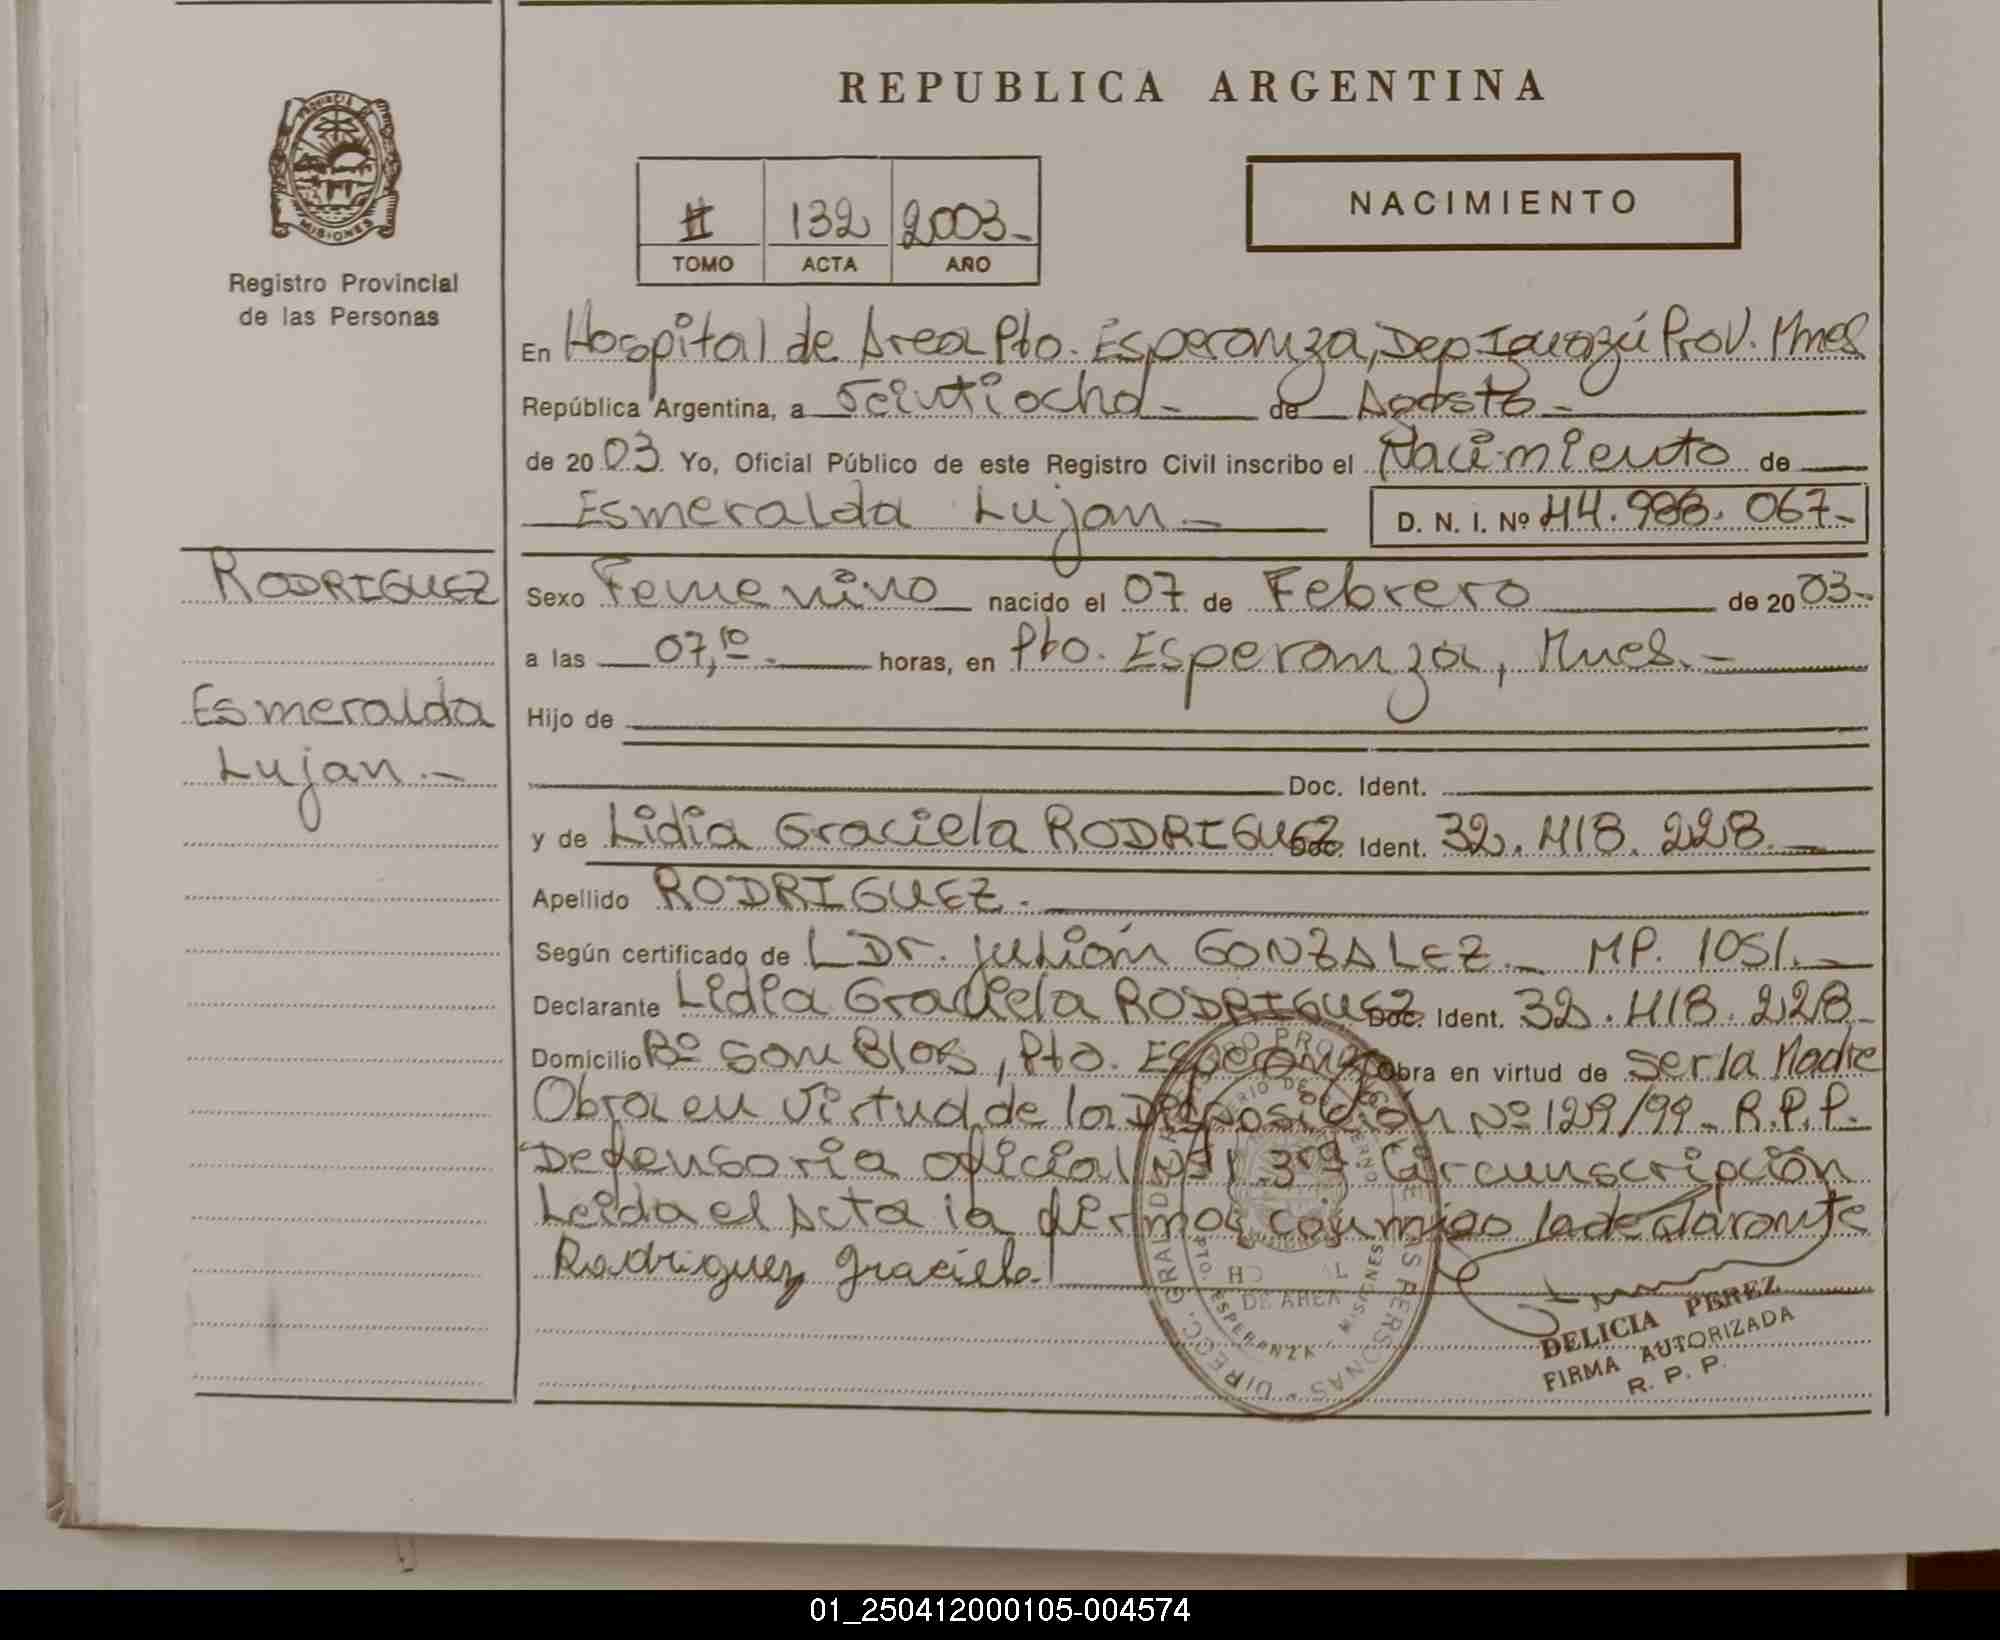 REPUBLICA ARGENTINA
PROVINCIA DE MISIONES
Registro Provincial
de las Personas
II 132 2003-
TOMO ACTA AÑO
NACIMIENTO
En Hospital de Area Pto. Esperanza, Dep Iguazú Prov. Mnes
República Argentina, a Veintiocho - de Agosto -
de 2003. Yo, Oficial Público de este Registro Civil inscribo el Nacimiento de
Esmeralda Lujan - D. N. I. Nº 44.988.067-
RODRIGUEZ
Esmeralda
Lujan.-
Sexo Femenino nacido el 07 de Febrero de 2003-
a las 07,10 - horas, en Pto. Esperanza, Mnes.-
Hijo de
Doc. Ident.
y de Lidia Graciela RODRIGUEZ Doc. Ident. 32.418.228.-
Apellido RODRIGUEZ.
Según certificado de L Dr. Julián GONZALEZ - MP. 1051.-
Declarante Lidia Graciela RODRIGUEZ Doc. Ident. 32.418.228-
Domicilio Bº San Blas, Pto. Esperanza Obra en virtud de ser la Madre
Obra en virtud de la Disposición Nº 129/99 - R.P.P.
Defensoria oficial Nº 1 3ra. Circunscripción
Leida el Acta la firma conmigo la declarante
Rodriguez Graciela
DIRECC. GRAL. DE PERSONAS
DE AREA
PTO. ESPERANZA MISIONES
DELICIA PEREZ
FIRMA AUTORIZADA
R. P. P.
01_250412000105-004574